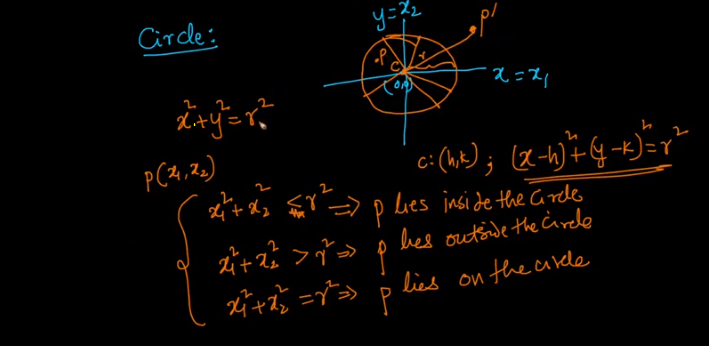 Circle:
y = x₂
p'
.p
C
r
(0,0)
x = x₁
x² + y² = r²
c: (h,k) ; (x-h)² + (y-k)² = r²
p(x₁, x₂)
x₁² + x₂² < r² ⇒ p lies inside the circle
x₁² + x₂² > r² ⇒ p lies outside the circle
x₁² + x₂² = r² ⇒ p lies on the circle